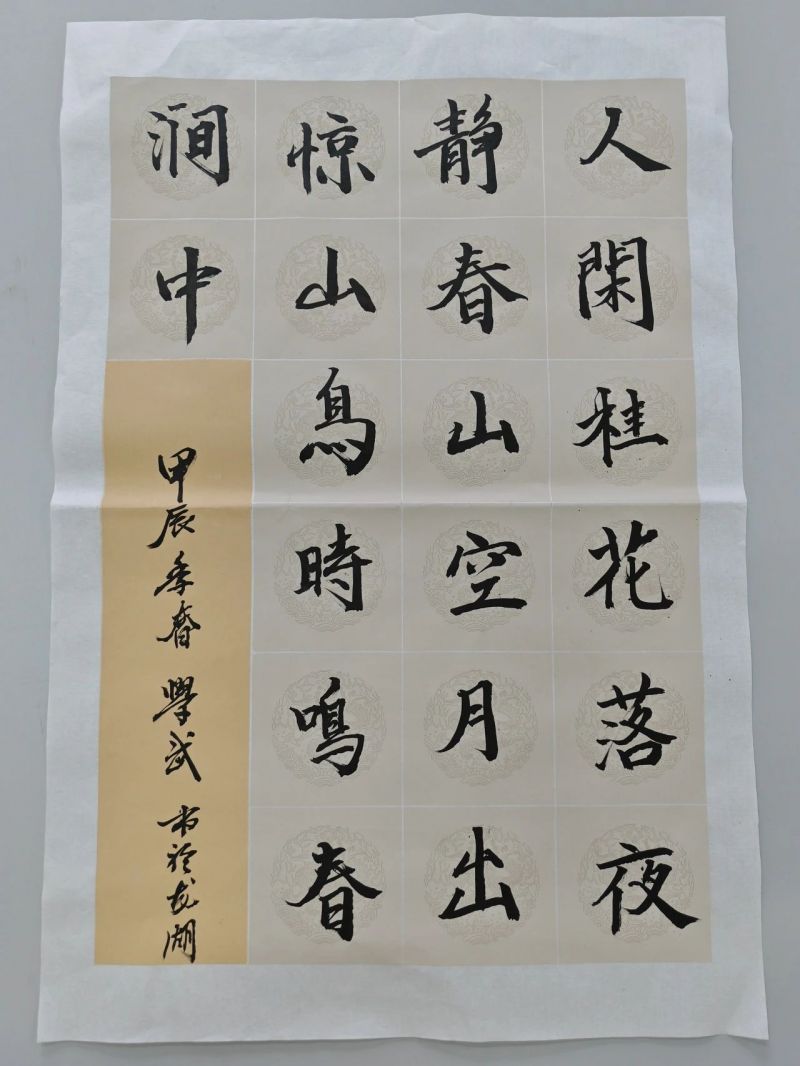 人閑桂花落夜
静春山空月出
惊山鳥時鳴春
澗中
甲辰季春 學武 书於龙湖